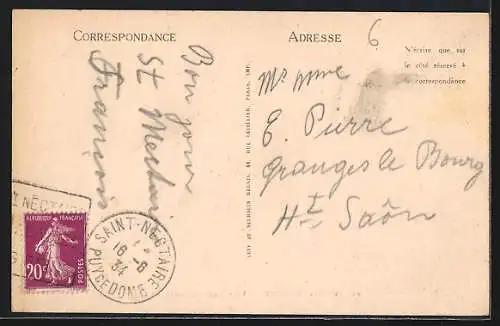 CORRESPONDANCE
ADRESSE
6
N'écrire que sur
le côté réservé à
correspondance
Bonjour
St Nectaire
François
Mr Mme
E. Pierre
Granges le Bourg
Hte Saôn
LEVY ET NEURDEIN RÉUNIS, 44, RUE LETELLIER, PARIS, IMP.
NECTAIRE
RÉPUBLIQUE FRANÇAISE
20c
POSTES
SAINT-NECTAIRE
16 -6
34
PUY DE DOME